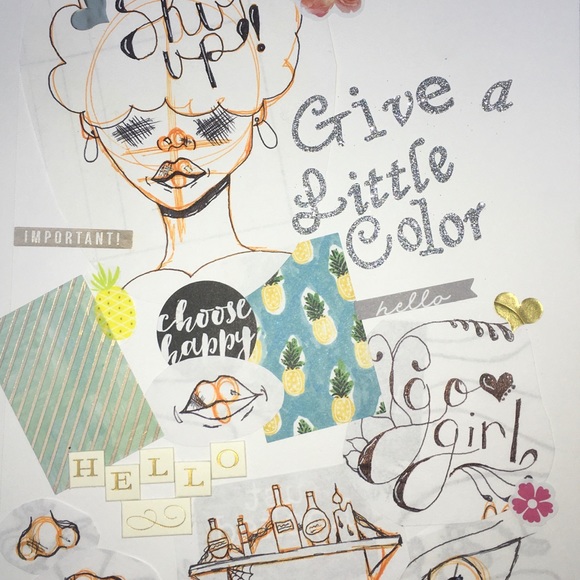 Shut
up!!
Give a
Little
Color
IMPORTANT!
choose
happy
hello
go
girl
HELLO